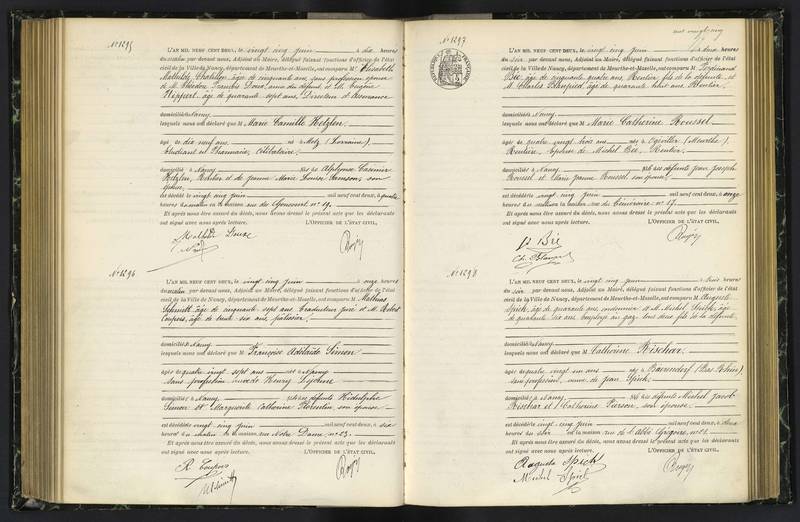 N° 1295
L'AN MIL NEUF CENT DEUX, le vingt cinq juin à dix heures
du matin par devant nous, Adjoint au Maire, délégué faisant fonctions d'officier de l'état
civil de la Ville de Nancy, département de Meurthe-et-Moselle, ont comparu M Elisabeth
Mathilde Chatillon, âgée de cinquante ans, sans profession, épouse
de M. Théodore Doux, amie du défunt et M. Eugène
âgé de quarante sept ans, Directeur d'assurance
domiciliés à Nancy
lesquels nous ont déclaré que M Marie Camille Hetzlen
âgé de dix neuf ans né à Metz (Lorraine),
Etudiant en Pharmacie, Célibataire,
domicilié à Nancy fils de Alphonse Casimir
Hetzlen, Rentier et de Jeanne Marie Louise son
épouse
est décédé le vingt cinq juin mil neuf cent deux, à quatre
heures du matin en la maison rue de n° 19.
Et après nous être assuré du décès, nous avons dressé le présent acte que les déclarants
ont signé avec nous après lecture. L'OFFICIER DE L'ÉTAT CIVIL,
Mathilde Doux
N° 1296
L'AN MIL NEUF CENT DEUX, le vingt cinq juin à onze heures
du matin par devant nous, Adjoint au Maire, délégué faisant fonctions d'officier de l'état
civil de la Ville de Nancy, département de Meurthe-et-Moselle, ont comparu M Mathias
Schmitt âgé de cinquante sept ans, Traducteur juré et M. Robert
Coupois, âgé de trente six ans, pâtissier
domiciliés à Nancy
lesquels nous ont déclaré que M Françoise Adélaïde Simon
âgée de quatre vingt sept ans née à Nancy
sans profession, veuve de Henry
domiciliée à Nancy fille des défunts Hidulphe
Simon et Marguerite Catherine Florentin, son épouse
est décédée vingt cinq juin mil neuf cent deux, à six
heures du matin en la maison rue Notre Dame n° 23.
Et après nous être assuré du décès, nous avons dressé le présent acte que les déclarants
ont signé avec nous après lecture. L'OFFICIER DE L'ÉTAT CIVIL,
R. Coupois
MSchmitt
N° 1297
L'AN MIL NEUF CENT DEUX, le vingt cinq juin à deux heures
du soir par devant nous, Adjoint au Maire, délégué faisant fonctions d'officier de l'état
civil de la Ville de Nancy, département de Meurthe-et-Moselle, ont comparu M Ferdinand
Bié, âgé de cinquante quatre ans, Rentier, fils de la défunte, et
M. Charles âgé de quarante huit ans, Rentier
domiciliés à Nancy
lesquels nous ont déclaré que M Marie Catherine Roussel
âgée de quatre vingt trois ans née à Ogéviller (Meurthe),
Rentière, épouse de Michel Bié, Rentier
domiciliée à Nancy fille des défunts Jean Joseph
Roussel et Marie Jeanne Roussel son épouse
est décédée vingt cinq juin mil neuf cent deux, à onze
heures du matin en la maison rue du Téméraire n° 17.
Et après nous être assuré du décès, nous avons dressé le présent acte que les déclarants
ont signé avec nous après lecture. L'OFFICIER DE L'ÉTAT CIVIL,
Bié
N° 1298
L'AN MIL NEUF CENT DEUX, le vingt cinq juin à trois heures
du soir par devant nous, Adjoint au Maire, délégué faisant fonctions d'officier de l'état
civil de la Ville de Nancy, département de Meurthe-et-Moselle, ont comparu M Auguste
Spick, âgé de quarante ans, et M. Michel Spick, âgé
de quarante six ans, employé au gaz, tous deux fils de la défunte,
domiciliés à Nancy
lesquels nous ont déclaré que M Catherine Rischar
âgée quatre vingt un ans née à Baerendorf (Bas Rhin)
sans profession, veuve de Jean Spick
domiciliée à Nancy fille des défunts Michel Jacob
Rischar et Catherine Pierson, son épouse
est décédée vingt cinq juin mil neuf cent deux, à deux
heures du soir en la maison rue de l'Abbé Grégoire,
Et après nous être assuré du décès, nous avons dressé le présent acte que les déclarants
ont signé avec nous après lecture. L'OFFICIER DE L'ÉTAT CIVIL,
Auguste Spick
Michel Spick